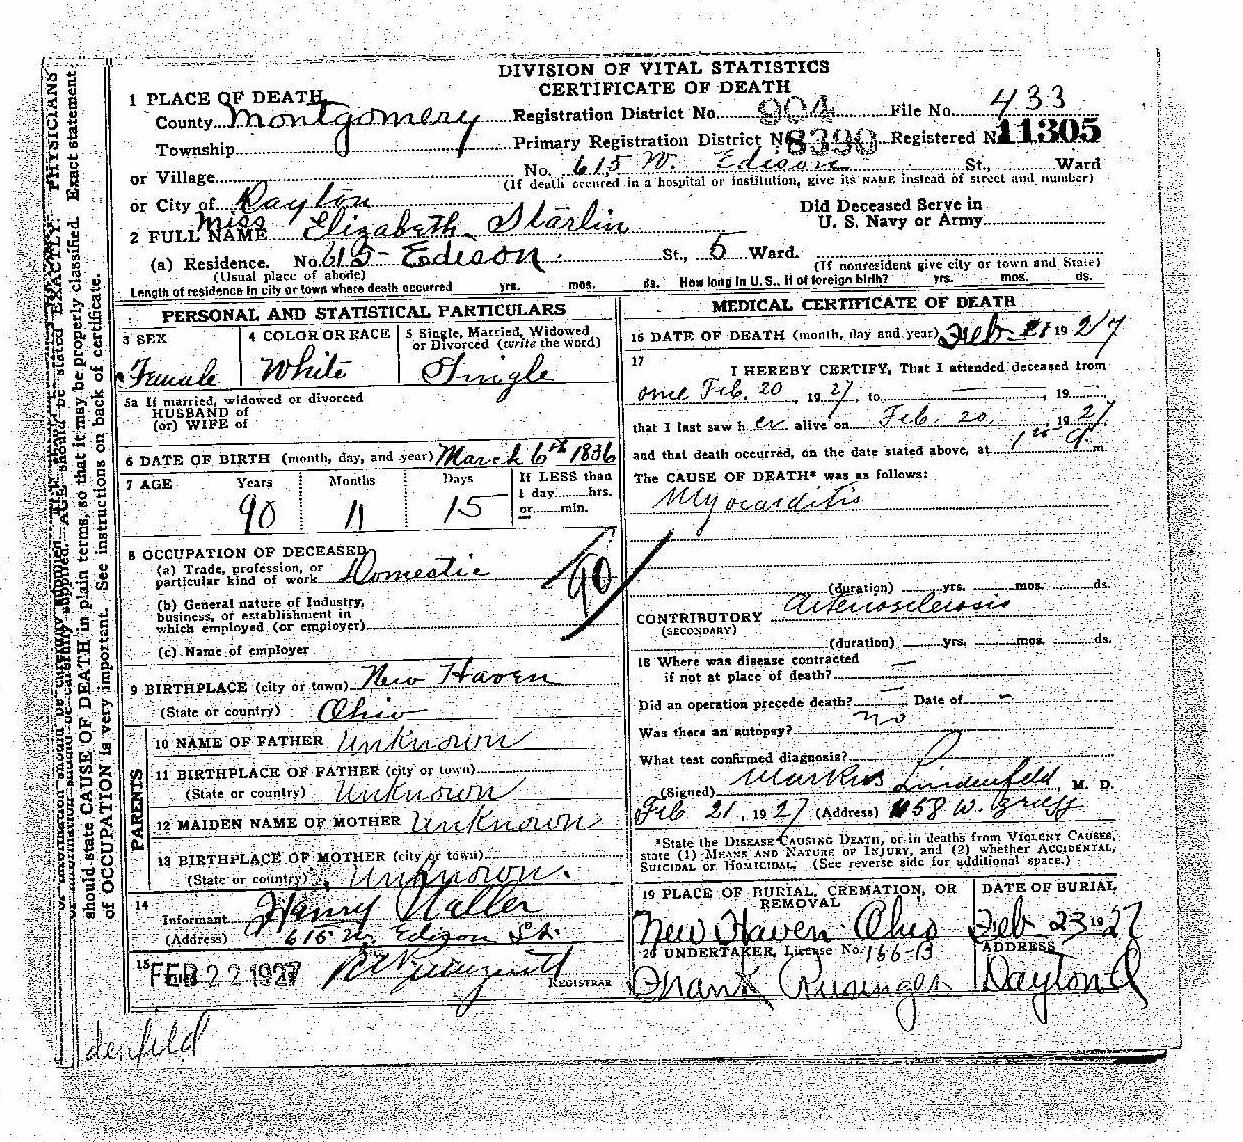 DIVISION OF VITAL STATISTICS
CERTIFICATE OF DEATH
1 PLACE OF DEATH
County Montgomery Registration District No. 904 File No. 433
Township Primary Registration District No. 8390 Registered No. 11305
or Village No. 615 W. Edison St., Ward
(If death occured in a hospital or institution, give its NAME instead of street and number)
or City of Dayton Did Deceased Serve in
U. S. Navy or Army
2 FULL NAME Miss Elizabeth Starlin
(a) Residence. No. 615- Edison St., 5 Ward.
(Usual place of abode) (If nonresident give city or town and State)
Length of residence in city or town where death occurred yrs. mos. ds. How long in U.S., if of foreign birth? yrs. mos. ds.
PERSONAL AND STATISTICAL PARTICULARS
3 SEX 4 COLOR OR RACE 5 Single, Married, Widowed
or Divorced (write the word)
Female White Single
5a If married, widowed or divorced
HUSBAND of
(or) WIFE of
6 DATE OF BIRTH (month, day, and year) March 6th 1836
7 AGE Years Months Days If LESS than
1 day hrs.
or min.
90 11 15
8 OCCUPATION OF DECEASED
(a) Trade, profession, or
particular kind of work Domestic
90
(b) General nature of Industry,
business, or establishment in
which employed (or employer)
(c) Name of employer
9 BIRTHPLACE (city or town) New Haven
(State or country) Ohio
PARENTS
10 NAME OF FATHER Unknown
11 BIRTHPLACE OF FATHER (city or town)
(State or country) Unknown
12 MAIDEN NAME OF MOTHER Unknown
13 BIRTHPLACE OF MOTHER (city or town)
(State or country) Unknown.
14
Informant Henry Waller
(Address) 615 W. Edison St.
15 FEB 22 1927 REGISTRAR
MEDICAL CERTIFICATE OF DEATH
16 DATE OF DEATH (month, day and year) Feb 21 1927
17 I HEREBY CERTIFY, That I attended deceased from
once Feb. 20, 1927, to , 19
that I last saw her alive on Feb. 20, 1927
and that death occurred, on the date stated above, at m.
The CAUSE OF DEATH* was as follows:
Myocarditis
(duration) yrs. mos. ds.
CONTRIBUTORY Arterosclerosis
(SECONDARY)
(duration) yrs. mos. ds.
18 Where was disease contracted
if not at place of death?
Did an operation precede death? Date of
Was there an autopsy? no
What test confirmed diagnosis?
(Signed) Markus Lindenfeld, M. D.
Feb 21, 1927 (Address) 58 W.
*State the DISEASE CAUSING DEATH, or in deaths from VIOLENT CAUSES,
state (1) MEANS AND NATURE OF INJURY, and (2) whether ACCIDENTAL,
SUICIDAL or HOMICIDAL. (See reverse side for additional space.)
19 PLACE OF BURIAL, CREMATION, OR REMOVAL DATE OF BURIAL
New Haven Ohio Feb 23 1927
20 UNDERTAKER, License No. 166-B ADDRESS
Frank Dayton O
denfeld
PHYSICIANS
should state CAUSE OF DEATH in plain terms, so that it may be properly classified. Exact statement
of OCCUPATION is very important. See instructions on back of certificate.